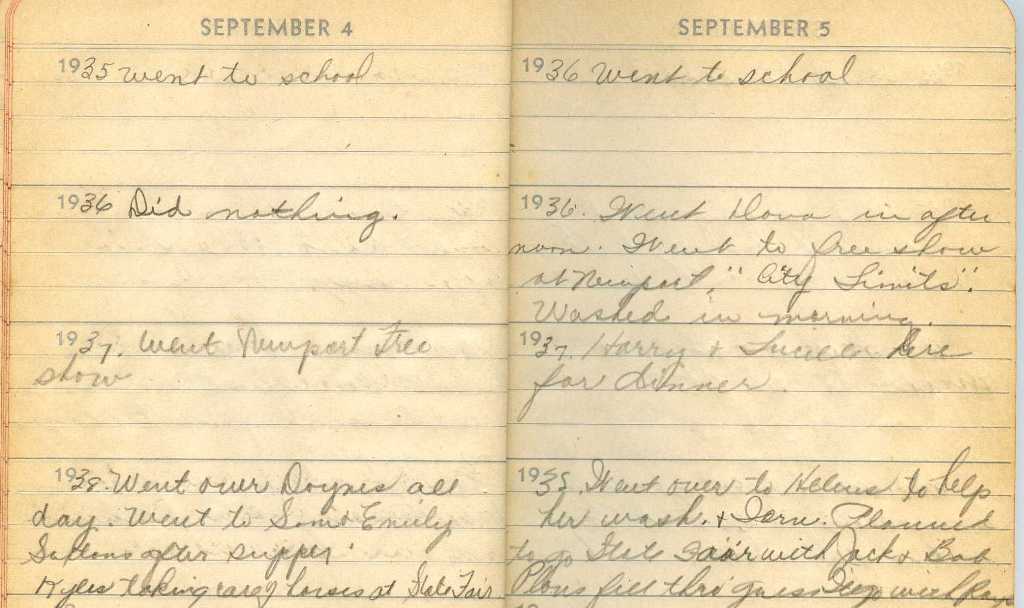 SEPTEMBER 4
1935 went to school
1936 Did nothing.
1937. Went Newport Free
show
1938. Went over Doynes all
day. Went to Som & Emily
after supper.
taking care of horses at State Fair
SEPTEMBER 5
1936 Went to school
1936. Went Dana in after
noon. Went to free show
at Newport, "City Limits".
Washed in morning.
1937. Harry & here
for dinner.
Went over to Helens to help
her wash. & Planned
to go State with Jack & Bob
Plans fell thro guess